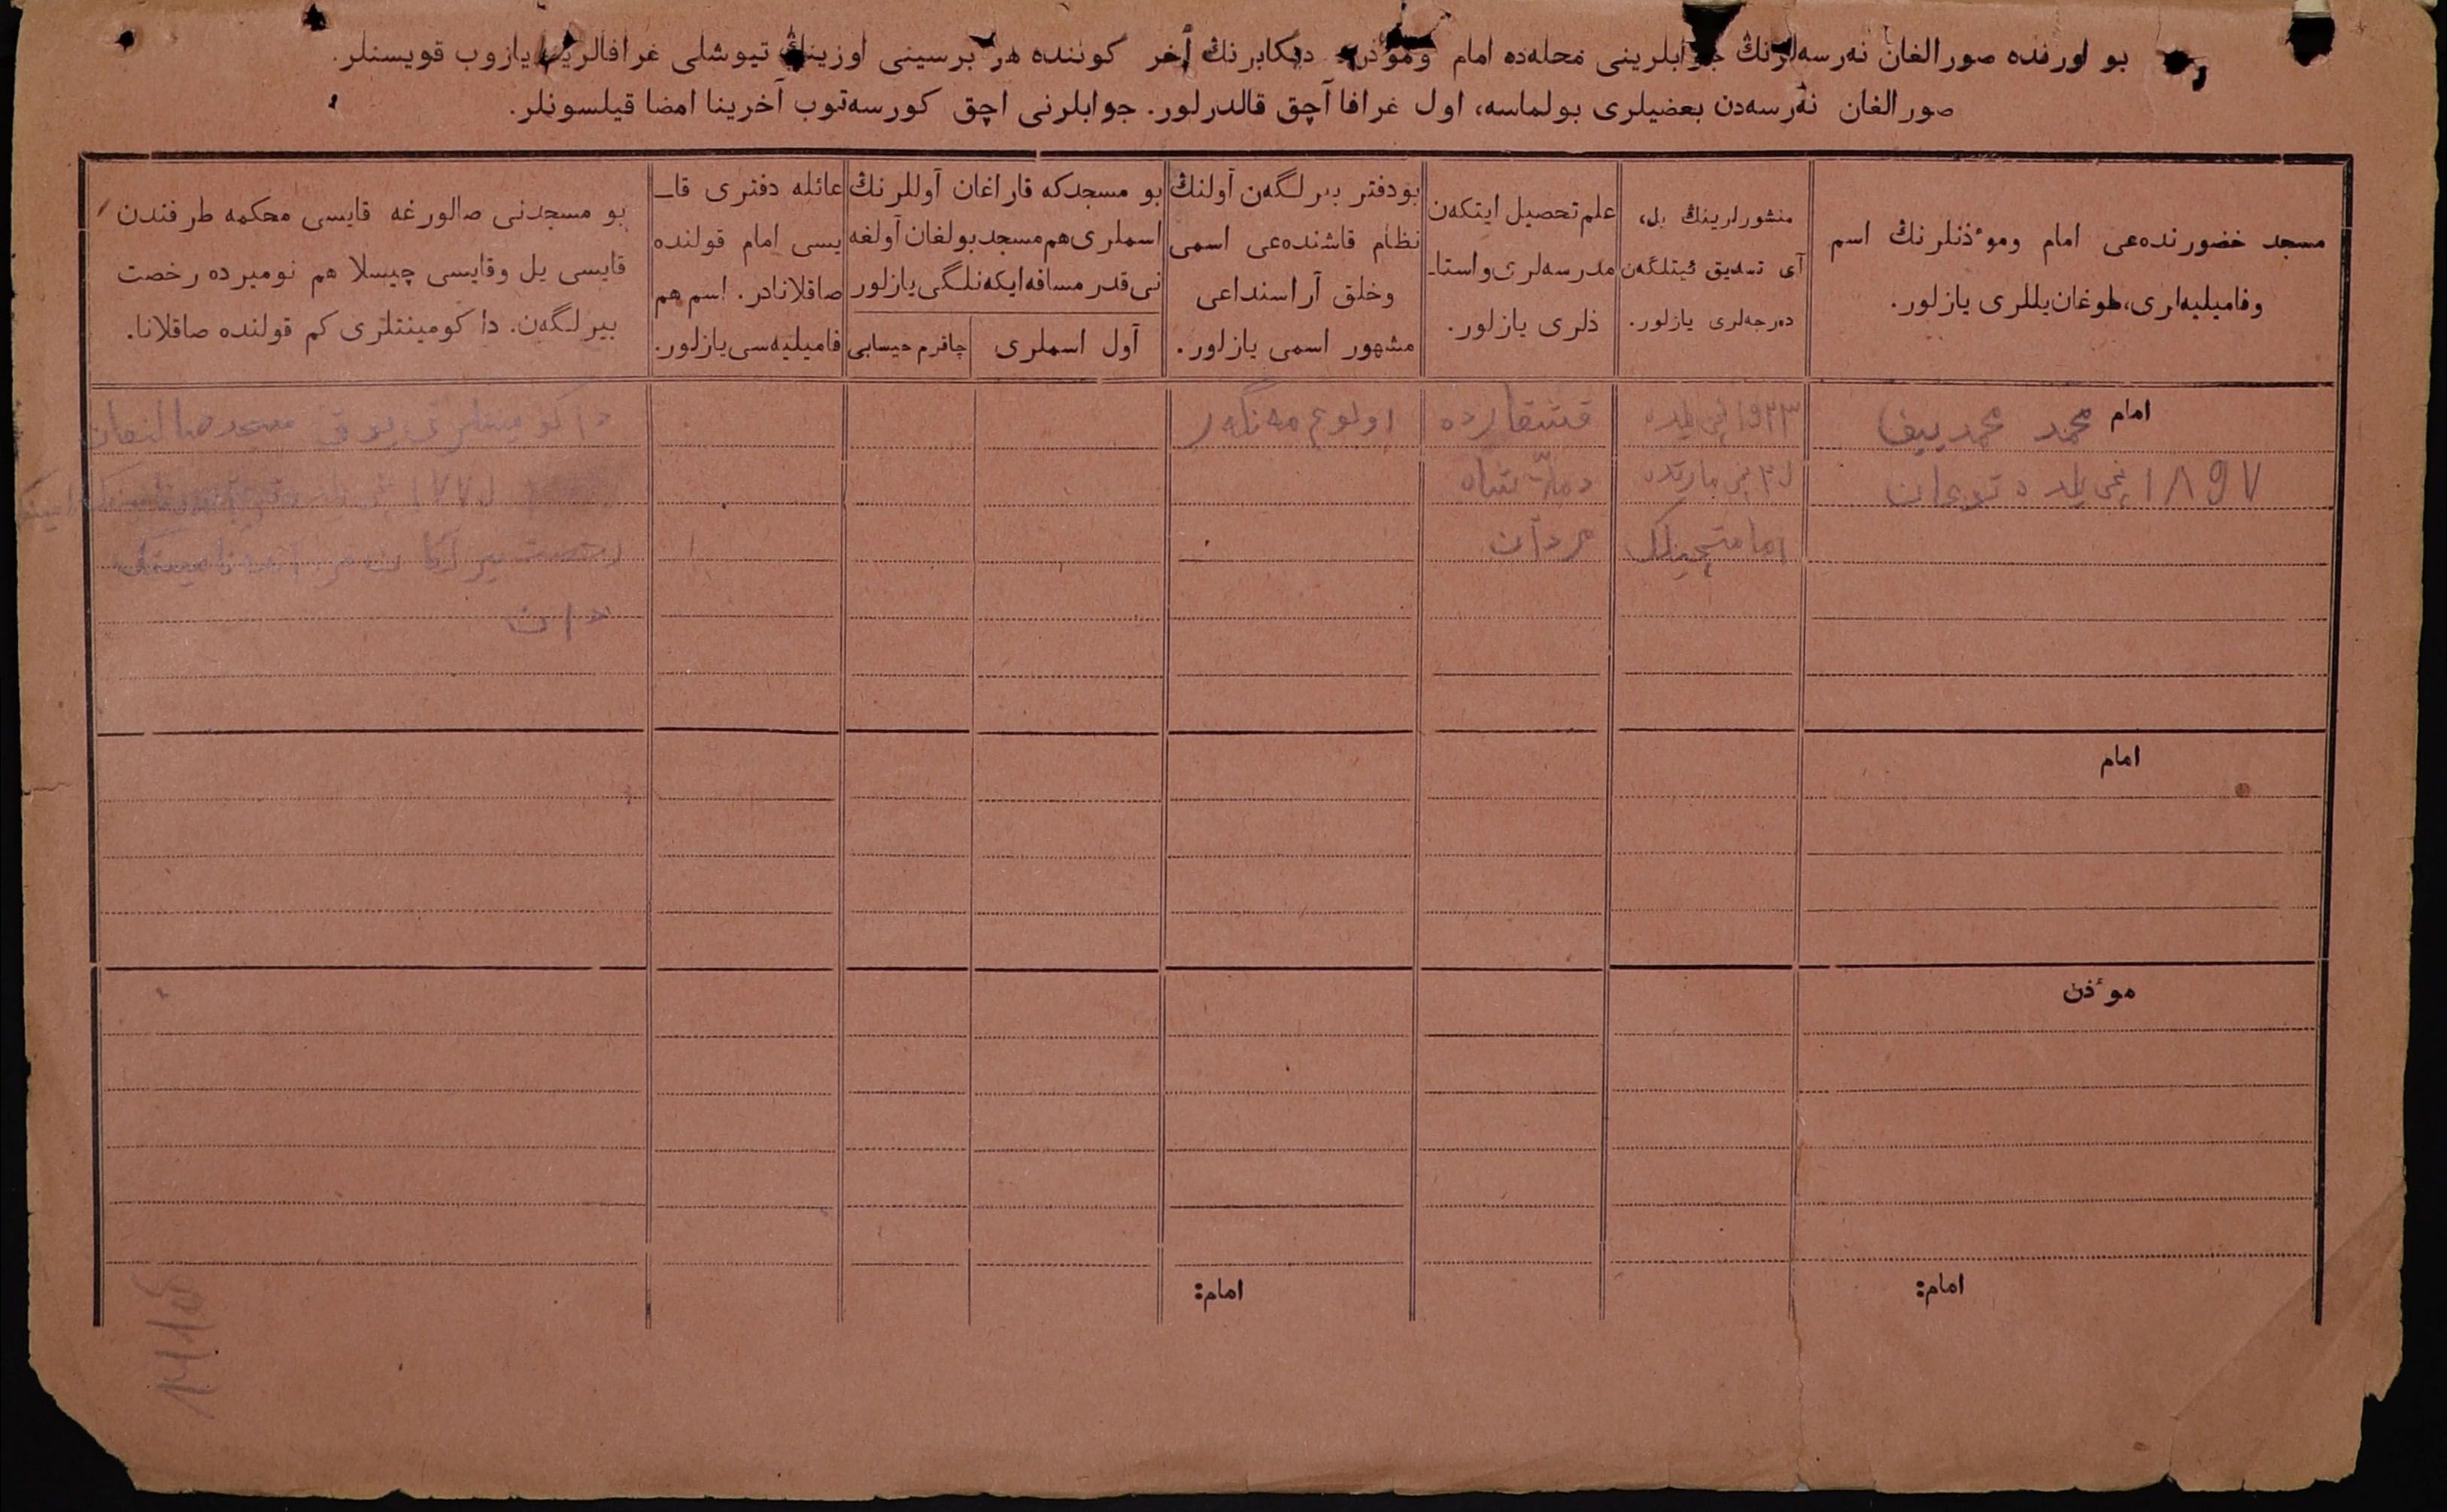 بو اورنده صورالغان نەرسەلرنڭ جوابلرینی محلەده امام وموٴذن دیکابرنڭ آخر کوننده هر برسینی اوزینڭ تیوشلی غرافالرینه یازوب قویسنلر.
صورالغان نەرسەدن بعضیلری بولماسه، اول غرافا آچق قالدرلور. جوابلرنی اچق کورسەتوب آخرینا امضا قیلسونلر.
مسجد حضورندەعی امام وموٴذنلرنڭ اسم
وفامیلیەلری،طوغان‌یللری یازلور.
منشورلرینڭ یل،
آی تسدیق ئیتلگەن
دەرجەلری یازلور.
علم‌تحصیل ایتکەن
مدرسەلری‌واستا۔
ذلری یازلور.
بودفتر بیرلگەن آولنڭ
نظام قاشندەعی اسمی
وخلق آراسنداعی
مشهور اسمی یازلور.
بو مسجدکه قاراغان آوللرنڭ
اسملری‌هم‌مسجدبولغان‌آولغه
نی‌قدرمسافەایکەنلگی‌یازلور
آول اسملری
چاقرم حیسابی
عائله دفتری قا۔
یسی امام قولنده
صاقلانادر. اسم هم
فامیلیەسی‌یازلور.
بو مسجدنی صالورغه قایسی محکمه طرفندن
قایسی یل وقایسی چیسلا هم نومیرده رخصت
بیرلگەن. داکومینتلری کم قولنده صاقلانا.
امام محمد محمدییف
١٨٩٧ نچی یلده توعان
١٩٢٣ نچی یلده
نچی مارتده
امامتچیلک
قشقارده
دملا شاه
مردان
اولوع مەنگەر
داکومینتلری یوق مسجد صالنعان
امام
موٴذن
امام:
امام: